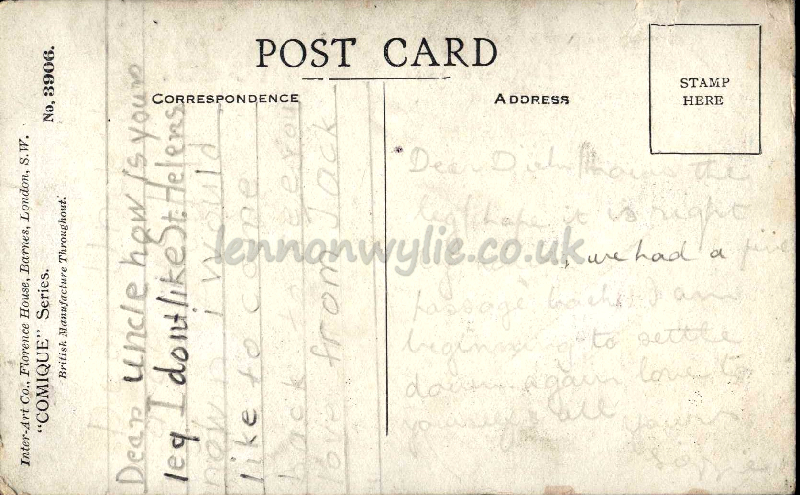 POST CARD
CORRESPONDENCE
ADDRESS
STAMP
HERE
Inter-Art Co., Florence House, Barnes, London, S.W.
"COMIQUE" Series.
No, 3906.
British Manufacture Throughout.
Dear Uncle how is your
leg I dont like St. Helens
now I would
like to come
back to see you
love from Jack
Dear Dick hows the
leg I hope it is right
again, we had a fine
passage back. I am
beginning to settle
down again love to
yourself & all yours
lennonwylie.co.uk